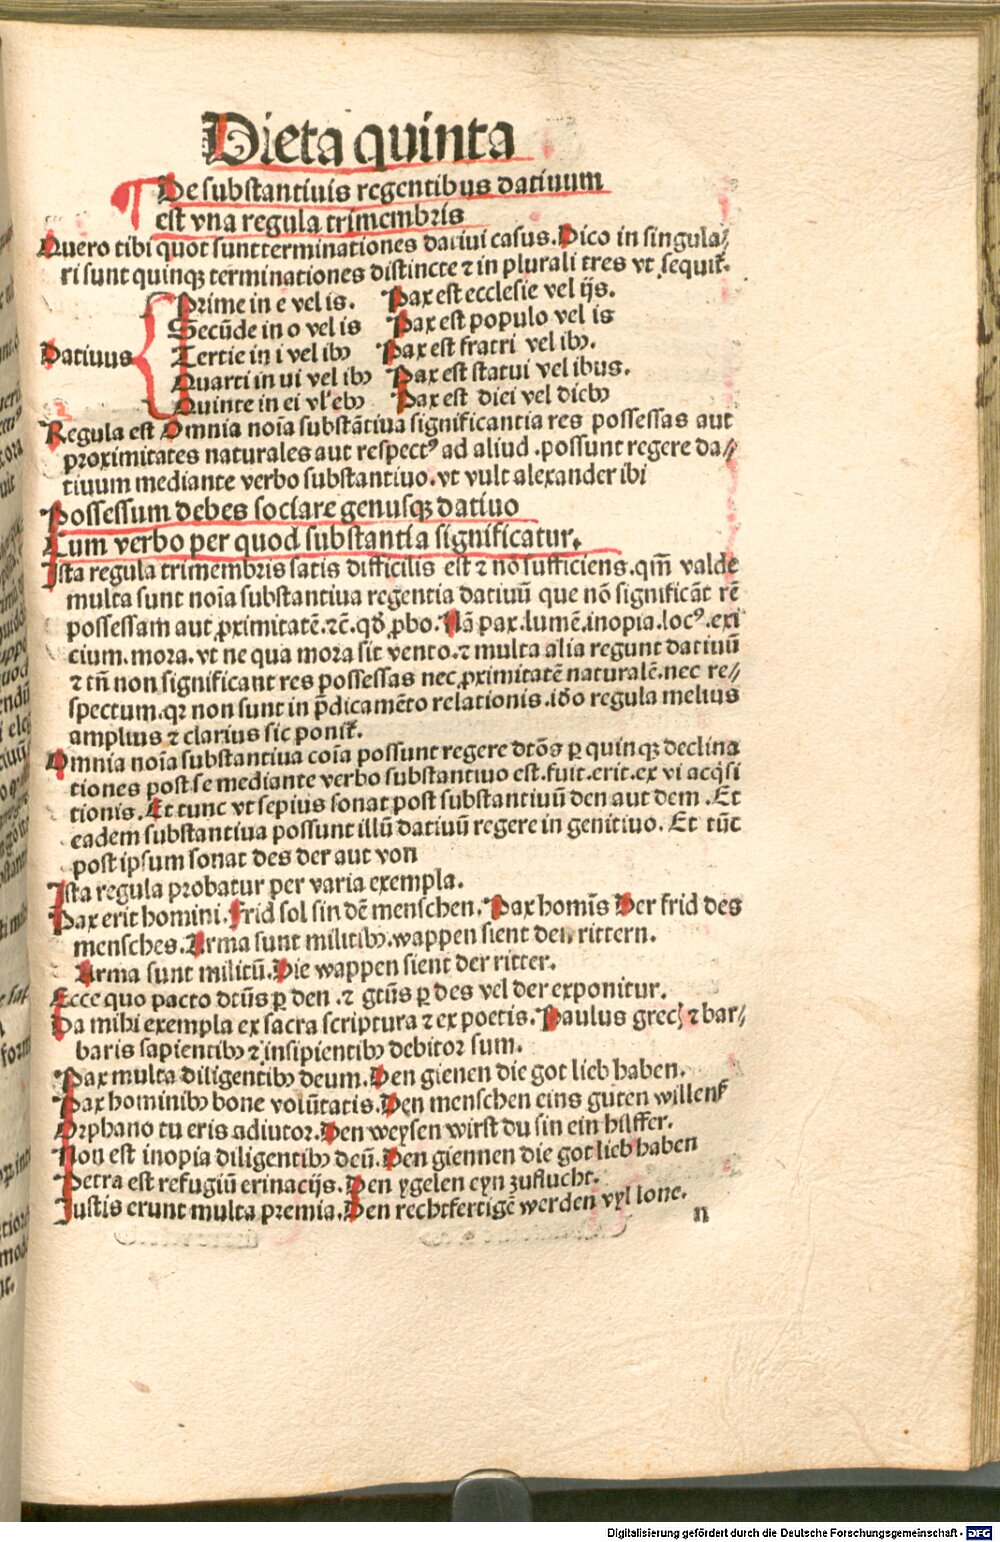 Dieta quinta
¶ De substantiuis regentibus datiuum
est vna regula trimembris
Quero tibi quot sunt terminationes datiui casus. Dico in singula⸗
ri sunt quinqꝫ terminationes distincte ⁊ in plurali tres vt sequit̃.
Prime in e vel is. Pax est ecclesie vel ijs.
Secũde in o vel is Pax est populo vel is
Datiuus Tertie in i vel ibꝰ Pax est fratri vel ibꝰ.
Quarti in ui vel ibꝰ Pax est statui vel ibus.
Quinte in ei vl' ebꝰ Pax est diei vel diebꝰ
Regula est Omnia noĩa substãtiua significantia res possessas aut
proximitates naturales aut respectꝰ ad aliud .possunt regere da⸗
tiuum mediante verbo substantiuo.vt vult alexander ibi
Possessum debes sociare genusqꝫ datiuo
Cum verbo per quod substantia significatur.
Ista regula trimembris satis difficilis est ⁊ nõ sufficiens.qm̃ valde
multa sunt noĩa substantiua regentia datiuũ que nõ significãt rẽ
possessam aut ꝓximitatẽ.⁊c̃.qđ ꝓbo. Nã pax.lumẽ.inopia.locꝰ.exi
cium.mora.vt ne qua mora sit vento.⁊ multa alia regunt datiuũ
⁊ tñ non significant res possessas nec ꝓximitatẽ naturalẽ.nec re⸗
spectum.qꝛ non sunt in p̃dicamẽto relationis.iđo regula melius
amplius ⁊ clarius sic ponit̃.
Omnia noĩa substantiua coĩa possunt regere dtõs ꝑ quinqꝫ declina
tiones post se mediante verbo substantiuo est.fuit.erit.ex vi acq̃si
tionis. Et tunc vt sepius sonat post substantiuũ den aut dem .Et
eadem substantiua possunt illũ datiuũ regere in genitiuo. Et tũc
post ipsum sonat des der aut von
Ista regula probatur per varia exempla.
Pax erit homini. Frid sol sin dẽ menschen. Pax homĩs Der frid des
mensches. Arma sunt militibꝰ.wappen sient den rittern.
Arma sunt militũ. Die wappen sient der ritter.
Ecce quo pacto dtũs ꝑ den .⁊ gtũs ꝑ des vel der exponitur.
Da mihi exempla ex sacra scriptura ⁊ ex poetis. Paulus grecꝭ ⁊ bar⸗
baris sapientibꝰ ⁊ insipientibꝰ debitor sum.
Pax multa diligentibꝰ deum. Den gienen die got lieb haben.
Pax hominibꝰ bone volũtatis. Den menschen eins guten willenß
Orphano tu eris adiutor. Den weysen wirst du sin ein hilffer.
Non est inopia diligentibꝰ deũ. Den giennen die got lieb haben
Petra est refugiũ erinacijs. Den ygelen eyn zuflucht.
Iustis erunt multa premia. Den rechtfertigẽ werden vyl lone.
n
Digitalisierung gefördert durch die Deutsche Forschungsgemeinschaft - DFG